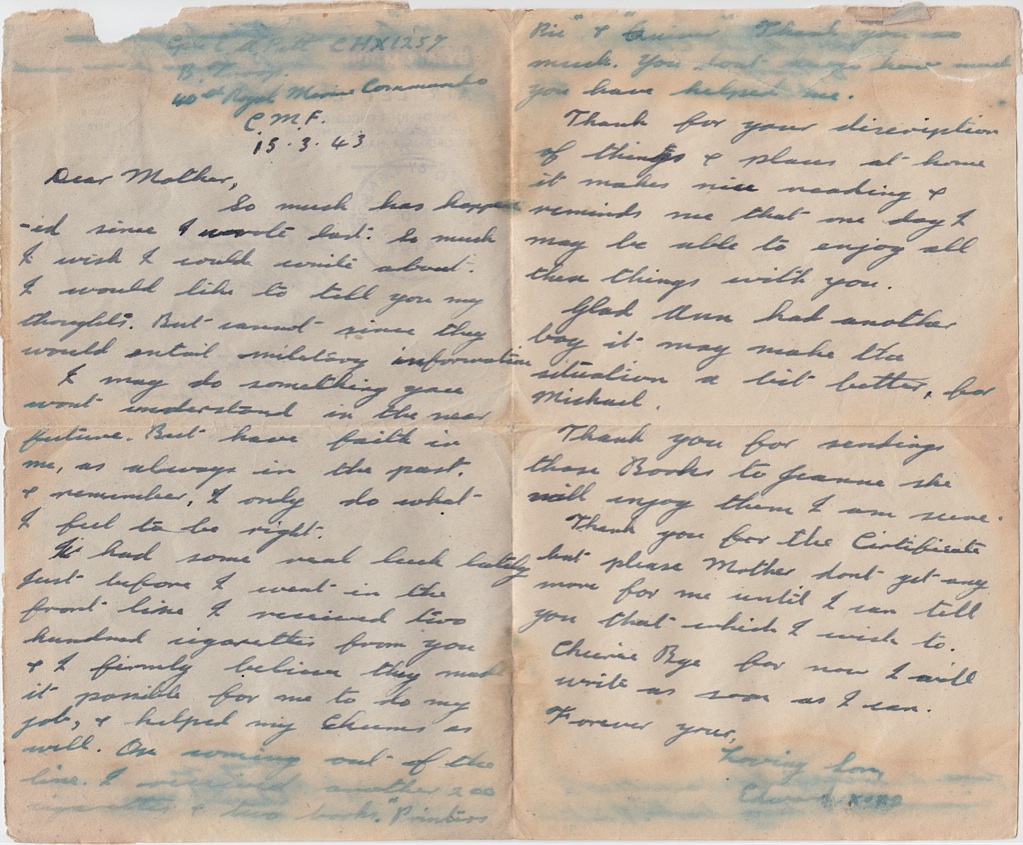 CHX1257
B. Troop.
40th Royal Marine Commando
C.M.F.
15.3.43
Dear Mother,
So much has happe
-id since I wrote last. So much
I wish I could write about.
I would like to tell you my
thoughts. But cannot since they
would entail military information
I may do something you
wont understand in the near
future. But have faith in
me, as always in the past.
& remember, I only do what
I feel to be right.
had some real luck lately
Just before I went in the
front line I received two
hundred cigarettes from you
& I firmly believe they made
it possible for me to do my
job, & helped my Chums as
will. On coming out of the
line. I received another 200
cigarettes & two books. "Printers
Pie" & Thank you so
much. You dont know how much
you have helped me.
Thank for your discription
of things & places at home
it makes nice reading &
reminds me that one day I
may be able to enjoy all
these things with you.
Glad Ann had another
boy it may make the
situation a bit better, for
Michael.
Thank you for sendings
those Books to Jeanne she
will enjoy them I am sure.
Thank you for the Cirtificate
but please Mother dont get any
more for me until I can tell
you that which I wish to.
Cheirie Bye for now I will
write as soon as I can.
Forever your,
Loving Son,